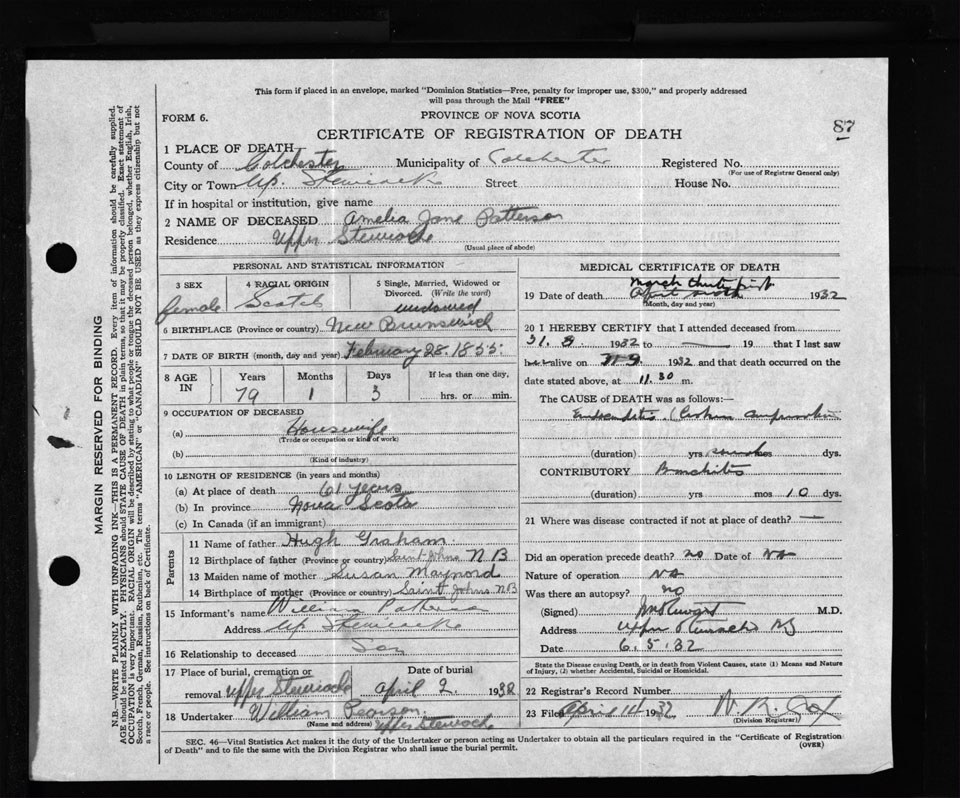 This form if placed in an envelope, marked "Dominion Statistics—Free, penalty for improper use, $300," and properly addressed
will pass through the Mail "FREE"
FORM 6.
PROVINCE OF NOVA SCOTIA
87
CERTIFICATE OF REGISTRATION OF DEATH
1 PLACE OF DEATH
County of Colchester Municipality of Colchester Registered No.
(For use of Registrar General only)
City or Town Up. Stewiacke Street House No.
If in hospital or institution, give name
2 NAME OF DECEASED Amelia Jane Patterson
Residence Upper Stewiacke
(Usual place of abode)
PERSONAL AND STATISTICAL INFORMATION
3 SEX 4 RACIAL ORIGIN 5 Single, Married, Widowed or Divorced. (Write the word)
female Scotch widowed
6 BIRTHPLACE (Province or country) New Brunswick
7 DATE OF BIRTH (month, day and year) February 28. 1853.
8 AGE IN Years Months Days If less than one day,
79 1 3 hrs. or min.
9 OCCUPATION OF DECEASED
(a) Housewife
(Trade or occupation or kind of work)
(b)
(Kind of industry)
10 LENGTH OF RESIDENCE (in years and months)
(a) At place of death 61 years
(b) In province Nova Scota
(c) In Canada (if an immigrant)
Parents
11 Name of father Hugh Graham
12 Birthplace of father (Province or country) Saint Johns N B
13 Maiden name of mother Susan Maynord
14 Birthplace of mother (Province or country) Saint Johns NB
15 Informant's name William Patterson
Address Up Stewiacke
16 Relationship to deceased Son
17 Place of burial, cremation or Date of burial
removal Upper Stewiacke April 2. 1932
18 Undertaker William Pearson.
(Name and address) Upper Stewiacke
MEDICAL CERTIFICATE OF DEATH
March thirty first
19 Date of death April 1932
(Month, day and year)
20 I HEREBY CERTIFY that I attended deceased from
31. 3. 1932 to — 19 that I last saw
her alive on 1932 and that death occurred on the
date stated above, at 11.30 m.
The CAUSE of DEATH was as follows:—
(duration) yrs. mos dys.
CONTRIBUTORY Bronchitis
(duration) yrs mos 10 dys.
21 Where was disease contracted if not at place of death? —
Did an operation precede death? no Date of No
Nature of operation No
Was there an autopsy? no
(Signed) M.D.
Address Upper Stewiacke NS
Date 6.5.32
State the Disease causing Death, or in death from Violent Causes, state (1) Means and Nature
of Injury, (2) whether Accidental, Suicidal or Homicidal.
22 Registrar's Record Number
23 Filed April 14 1932
(Division Registrar)
SEC. 46—Vital Statistics Act makes it the duty of the Undertaker or person acting as Undertaker to obtain all the particulars required in the "Certificate of Registration
of Death" and to file the same with the Division Registrar who shall issue the burial permit.
(OVER)
MARGIN RESERVED FOR BINDING
N.B.—WRITE PLAINLY WITH UNFADING INK—THIS IS A PERMANENT RECORD. Every item of information should be carefully supplied.
AGE should be stated EXACTLY. PHYSICIANS should STATE CAUSE OF DEATH in plain terms, so that it may be properly classified. Exact statement of
OCCUPATION is very important. RACIAL ORIGIN will be described by stating to what people or tongue the deceased person belonged, whether English, Irish,
Scotch, French, German, Russian, Ruthenian, etc. The terms "AMERICAN" or "CANADIAN" SHOULD NOT BE USED as they express citizenship but not
a race or people. See instructions on back of Certificate.